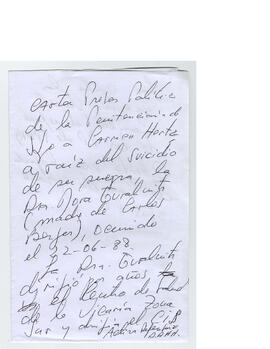 carta Presos Políticos
de la Penitenciaría de
Stgo a Carmen Hertz
a raíz del suicidio
de su suegra, la
Dra Dora Guralnik
(madre de Carlos
Berger), ocurrido
el 22-06-88.
La Dra. Guralnik
dirigió por años
el Depto de
de la Zona
Sur y